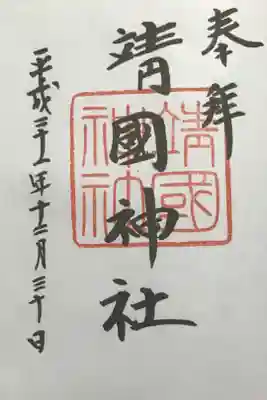 奉拜
靖國神社
平成年十二月三十日
靖國
神社